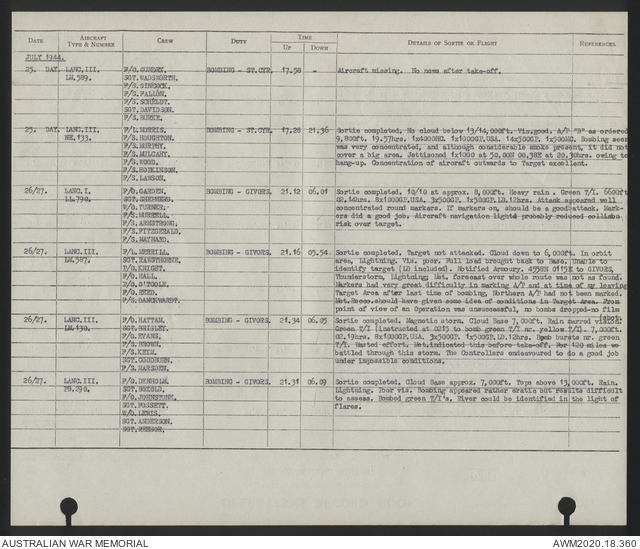 DATE AIRCRAFT TYPE & NUMBER CREW DUTY TIME UP DOWN DETAILS OF SORTIE OR FLIGHT REFERENCES.
JULY 1944.
25. DAY. LANC.III. LM.589.
SGT. WADSWORTH.
F/S. FALLON.
SGT. DAVIDSON.
BOMBING - ST.CYR. 17.58 -
Aircraft missing. No news after take-off.
25. DAY. LANC.III. NE.133.
F/L. MORRIS.
F/S. HOUGHTON.
F/S. MURPHY.
F/S. MULCAHY.
F/S. WOOD.
F/S. HODKINSON.
F/S. LAWSON.
BOMBING - ST.CYR. 17.28 21.36
Sortie completed. No cloud below 13/14,000ft. Viz.good. A/P "B" as ordered
9,800ft. 19.57hrs. 1x4000HC. 1x1000GP.USA. 14x500GP. 1x500MC. Bombing seen
was very concentrated, and although considerable smoke present, it did not
cover a big area. Jettisoned 1x1000 at 50.00N 00.38E at 20.30hrs. owing to
hang-up. Concentration of aircraft outwards to Target excellent.
26/27. LANC.I. LL.790.
F/O. GARDEN.
SGT. SHEPHERD.
W/O. TURNER.
F/S. RUSSELL.
F/S. ARMSTRONG.
F/S. FITZGERALD.
F/S. MAYNARD.
BOMBING - GIVORS. 21.12 06.01
Sortie completed. 10/10 at approx. 8,000ft. Heavy rain. Green T/I. 6600ft
02.14hrs. 8x1000GP.USA. 3x500GP. 1x500GP.LD.12hrs. Attack appeared well
concentrated round markers. If markers on, should be a good attack. Mark-
ers did a good job. Aircraft navigation lights probably reduced collision
risk over target.
26/27. LANC.III. LM.587.
F/L. MERRILL.
F/O. KNIGHT.
F/O. HALL.
D/O. O'TOOLE.
F/O. REED.
F/S. DANCKWARDT.
BOMBING - GIVORS. 21.16 05.54
Sortie completed. Target not attacked. Cloud down to 6,000ft. In orbit
area, Lightning. Vis. poor. Full load brought back to Base. Unable to
identify target (LD included). Notified Armoury. 4538N 0115E to GIVORS,
Thunderstorm, Lightning; Met. forecast over whole route was not as found.
Markers had very great difficulty in marking A/P and at time of my leaving
Target Area after last time of bombing, Northern A/P had not been marked.
Met. Recco. should have given some idea of conditions in Target Area. From
point of view of an Operation was unsuccessful, no bombs dropped-no film
26/27. LANC.III. LM.130.
F/O. HATTAM.
SGT. BRISLEY.
F/O. EVANS.
F/S. BROWN.
F/S. KEIR.
SGT. GOODBURN.
F/S. MARSDEN.
BOMBING - GIVORS. 21.34 06.05
Sortie completed. Magnetic storm. Cloud Base 7,000ft. Rain marred vision.
Green T/I (instructed at 0215 to bomb green T/I nr. yellow T/I). 7,000ft.
02.19hrs. 8x1000GP.USA. 3x500GP. 1x500GP.LD.12hrs. Bomb bursts nr. green
T/I. Wasted effort. Met.indicated this before take-off. For 120 miles we
battled through this storm. The Controllers endeavoured to do a good job
under impossible conditions.
26/27. LANC.III. PB.290.
F/O. DENHOLM.
F/O. JOHNSTONE.
SGT. FOSSETT.
W/O. LEWIS.
SGT. ANDERSON.
BOMBING - GIVORS. 21.31 06.09
Sortie completed. Cloud Base approx. 7,000ft. Tops above 13,000ft. Rain.
Lightning. Poor vis. Bombing appeared rather eratic but results difficult
to assess. Bombed green T/I's. River could be identified in the light of
flares.
AUSTRALIAN WAR MEMORIAL AWM2020.18.360